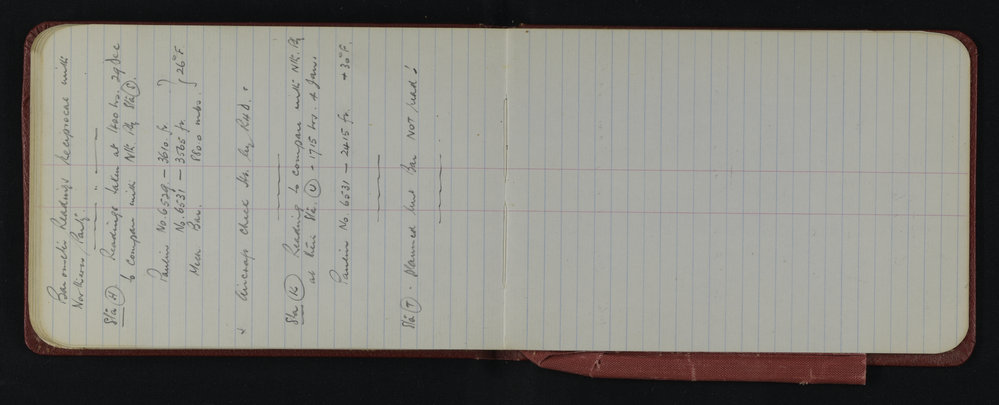 Barometric Readings reciprocal with
Northern Party.
Sta (H) Readings taken at 1400 hrs. 29 Dec
to compare with NR. Pty Sta
Paulin No. 6529 — 3610 ft. }
No. 6531 — 3565 ft. } 26°F
Meer Bar. 880.0 mbs.
& Aircraft check Ht. by
Sta Reading to compare with NR. Pty
at their Sta. - 1715 hrs. 4 Jan.
Paulin No. 6531 — 2415 ft. + 30°F.
Sta (T). Planned but Bar NOT read!